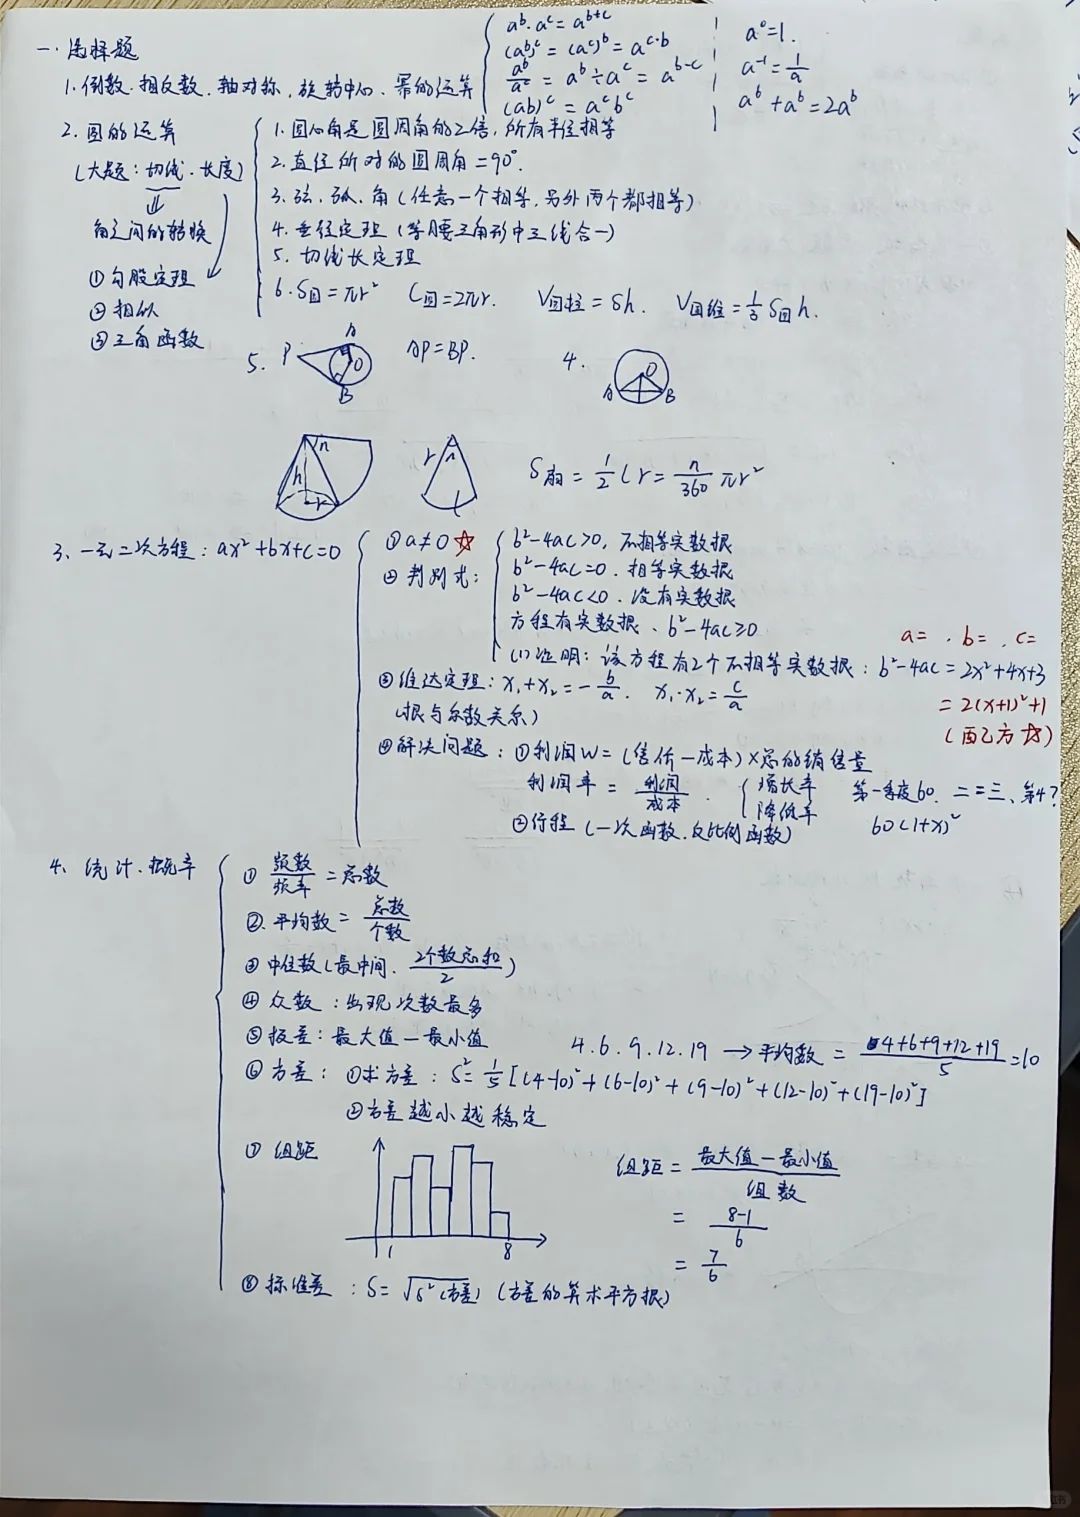 一.选择题
1.倒数.相反数.轴对称,旋转中心.幂的运算
a^b·a^c=a^{b+c}
(a^b)^c=(a^c)^b=a^{c·b}
a^b/a^c=a^b÷a^c=a^{b-c}
(ab)^c=a^c b^c
a^0=1.
a^{-1}=1/a
a^b+a^b=2a^b
2.圆的运算
(大题:切线.长度)
角之间的转换
①勾股定理
②相似
③三角函数
1.圆心角是圆周角的2倍,所有半径相等
2.直径所对的圆周角=90°.
3.弦.弧.角(任意一个相等,另外两个都相等)
4.垂径定理(等腰三角形中三线合一)
5.切线长定理
6.S圆=πr² C圆=2πr. V圆柱=Sh. V圆锥=1/3 S圆h.
5. P A O B AP=BP. 4. O A B
n h r r n l S扇=1/2 lr=n/360 πr²
3、一元二次方程:ax²+bx+c=0
①a≠0☆
②判别式:
b²-4ac>0,不相等实数根
b²-4ac=0.相等实数根
b²-4ac<0.没有实数根
方程有实数根、b²-4ac≥0
a= .b= ,c=
(1)证明:该方程有2个不相等实数根:b²-4ac=2x²+4x+3
=2(x+1)²+1
(配方☆)
③维达定理:x₁+x₂=-b/a. x₁·x₂=c/a
(根与系数关系)
④解决问题:①利润W=(售价-成本)×总的销售量
利润率=利润/成本. 增长率 第一季度60.二=三、第4?
降低率 60(1+x)²
②行程(一次函数.反比例函数)
4、统计.概率
①频数/频率=总数
②.平均数=总数/个数
③中位数(最中间.2个数总和/2)
④众数:出现次数最多
⑤极差:最大值-最小值
4.6.9.12.19→平均数=4+6+9+12+19/5=10
⑥方差:①求方差:S²=1/5[(4-10)²+(6-10)²+(9-10)²+(12-10)²+(19-10)²]
②方差越小越稳定
⑦组距
1 8
组距=最大值-最小值/组数
=8-1/6
=7/6
⑧标准差:S=√S²(方差)(方差的算术平方根)